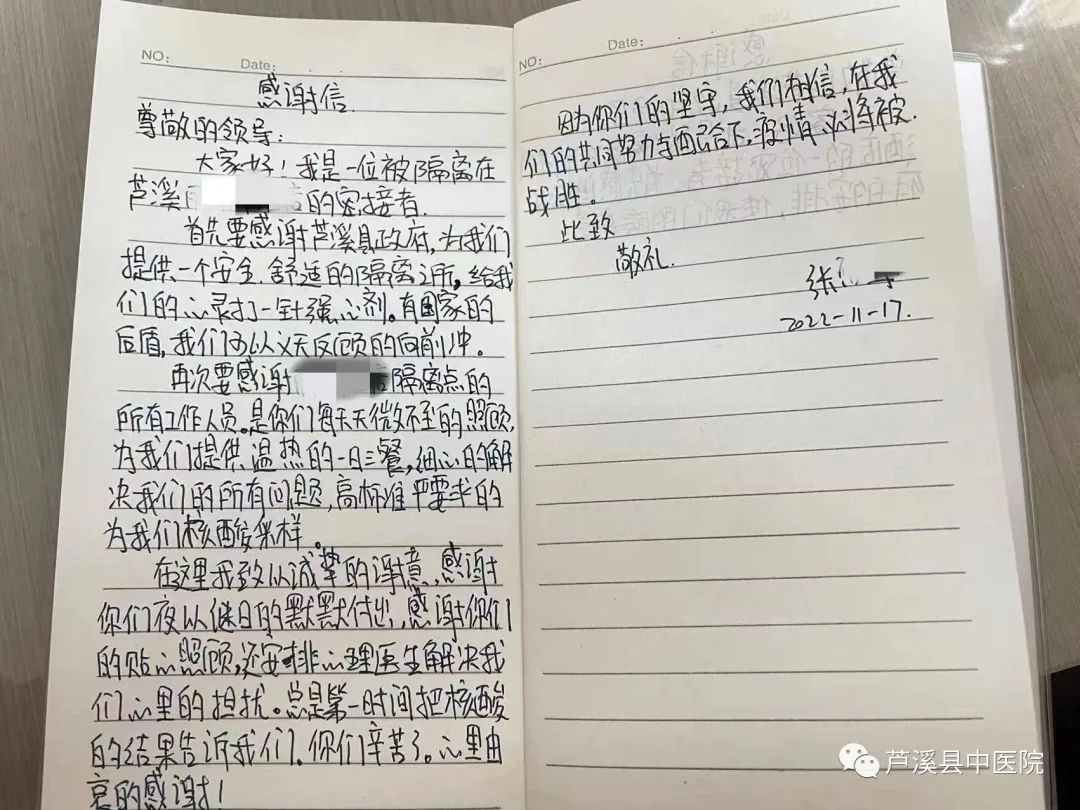 NO:
Date:
感谢信.
尊敬的领导:
大家好!我是一位被隔离在
芦溪 的密接者.
首先要感谢芦溪县政府,为我们
提供一个安全.舒适的隔离之所,给我
们的心灵打一针强心剂。有国家的
后盾,我们可以义无反顾的向前冲。
再次要感谢 隔离点的
所有工作人员。是你们每天无微不至的照顾,
为我们提供温热的一日三餐,细心的解
决我们的所有问题,高标准严要求的
为我们核酸采样。
在这里我致以诚挚的谢意,感谢
你们夜以继日的默默付出,感谢你们
的贴心照顾,还安排心理医生解决我
们心里的担扰。总是第一时间把核酸
的结果告诉我们.你们辛苦了。心里由
衷的感谢!
NO:
Date:
因为你们的坚守,我们相信,在我
们的共同努力与配合下,疫情必将被
战胜。
此致
敬礼.
张
2022-11-17.
芦溪县中医院